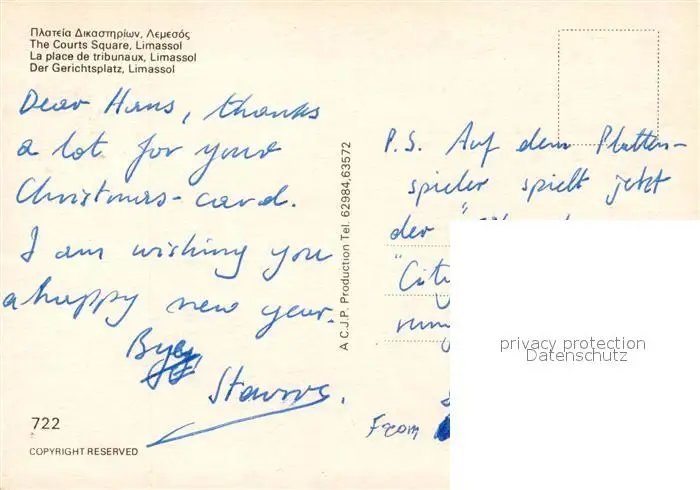 Πλατεία Δικαστηρίων, Λεμεσός
The Courts Square, Limassol
La place de tribunaux, Limassol
Der Gerichtsplatz, Limassol
Dear Hans, thanks
a lot for your
Christmas-card.
I am wishing you
a happy new year.
Bye
Stavros.
722
COPYRIGHT RESERVED
A C.J.P. Production Tel. 62984,63572
P.S. Auf dem Platten-
spieler spielt jetzt
der
"City
From
privacy protection
Datenschutz